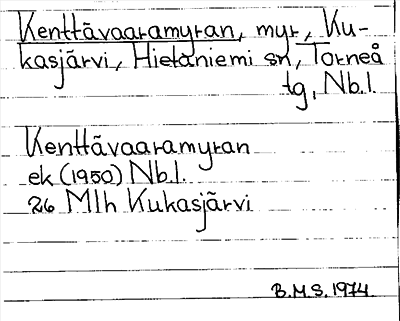 Kenttävaaramyran, myr, Ku-
kasjärvi, Hietaniemi sn, Torneå
tg, Nb.l.
Kenttävaaramyran
ek (1950) Nb.l.
26 Mlh Kukasjärvi
B.M.S. 1974